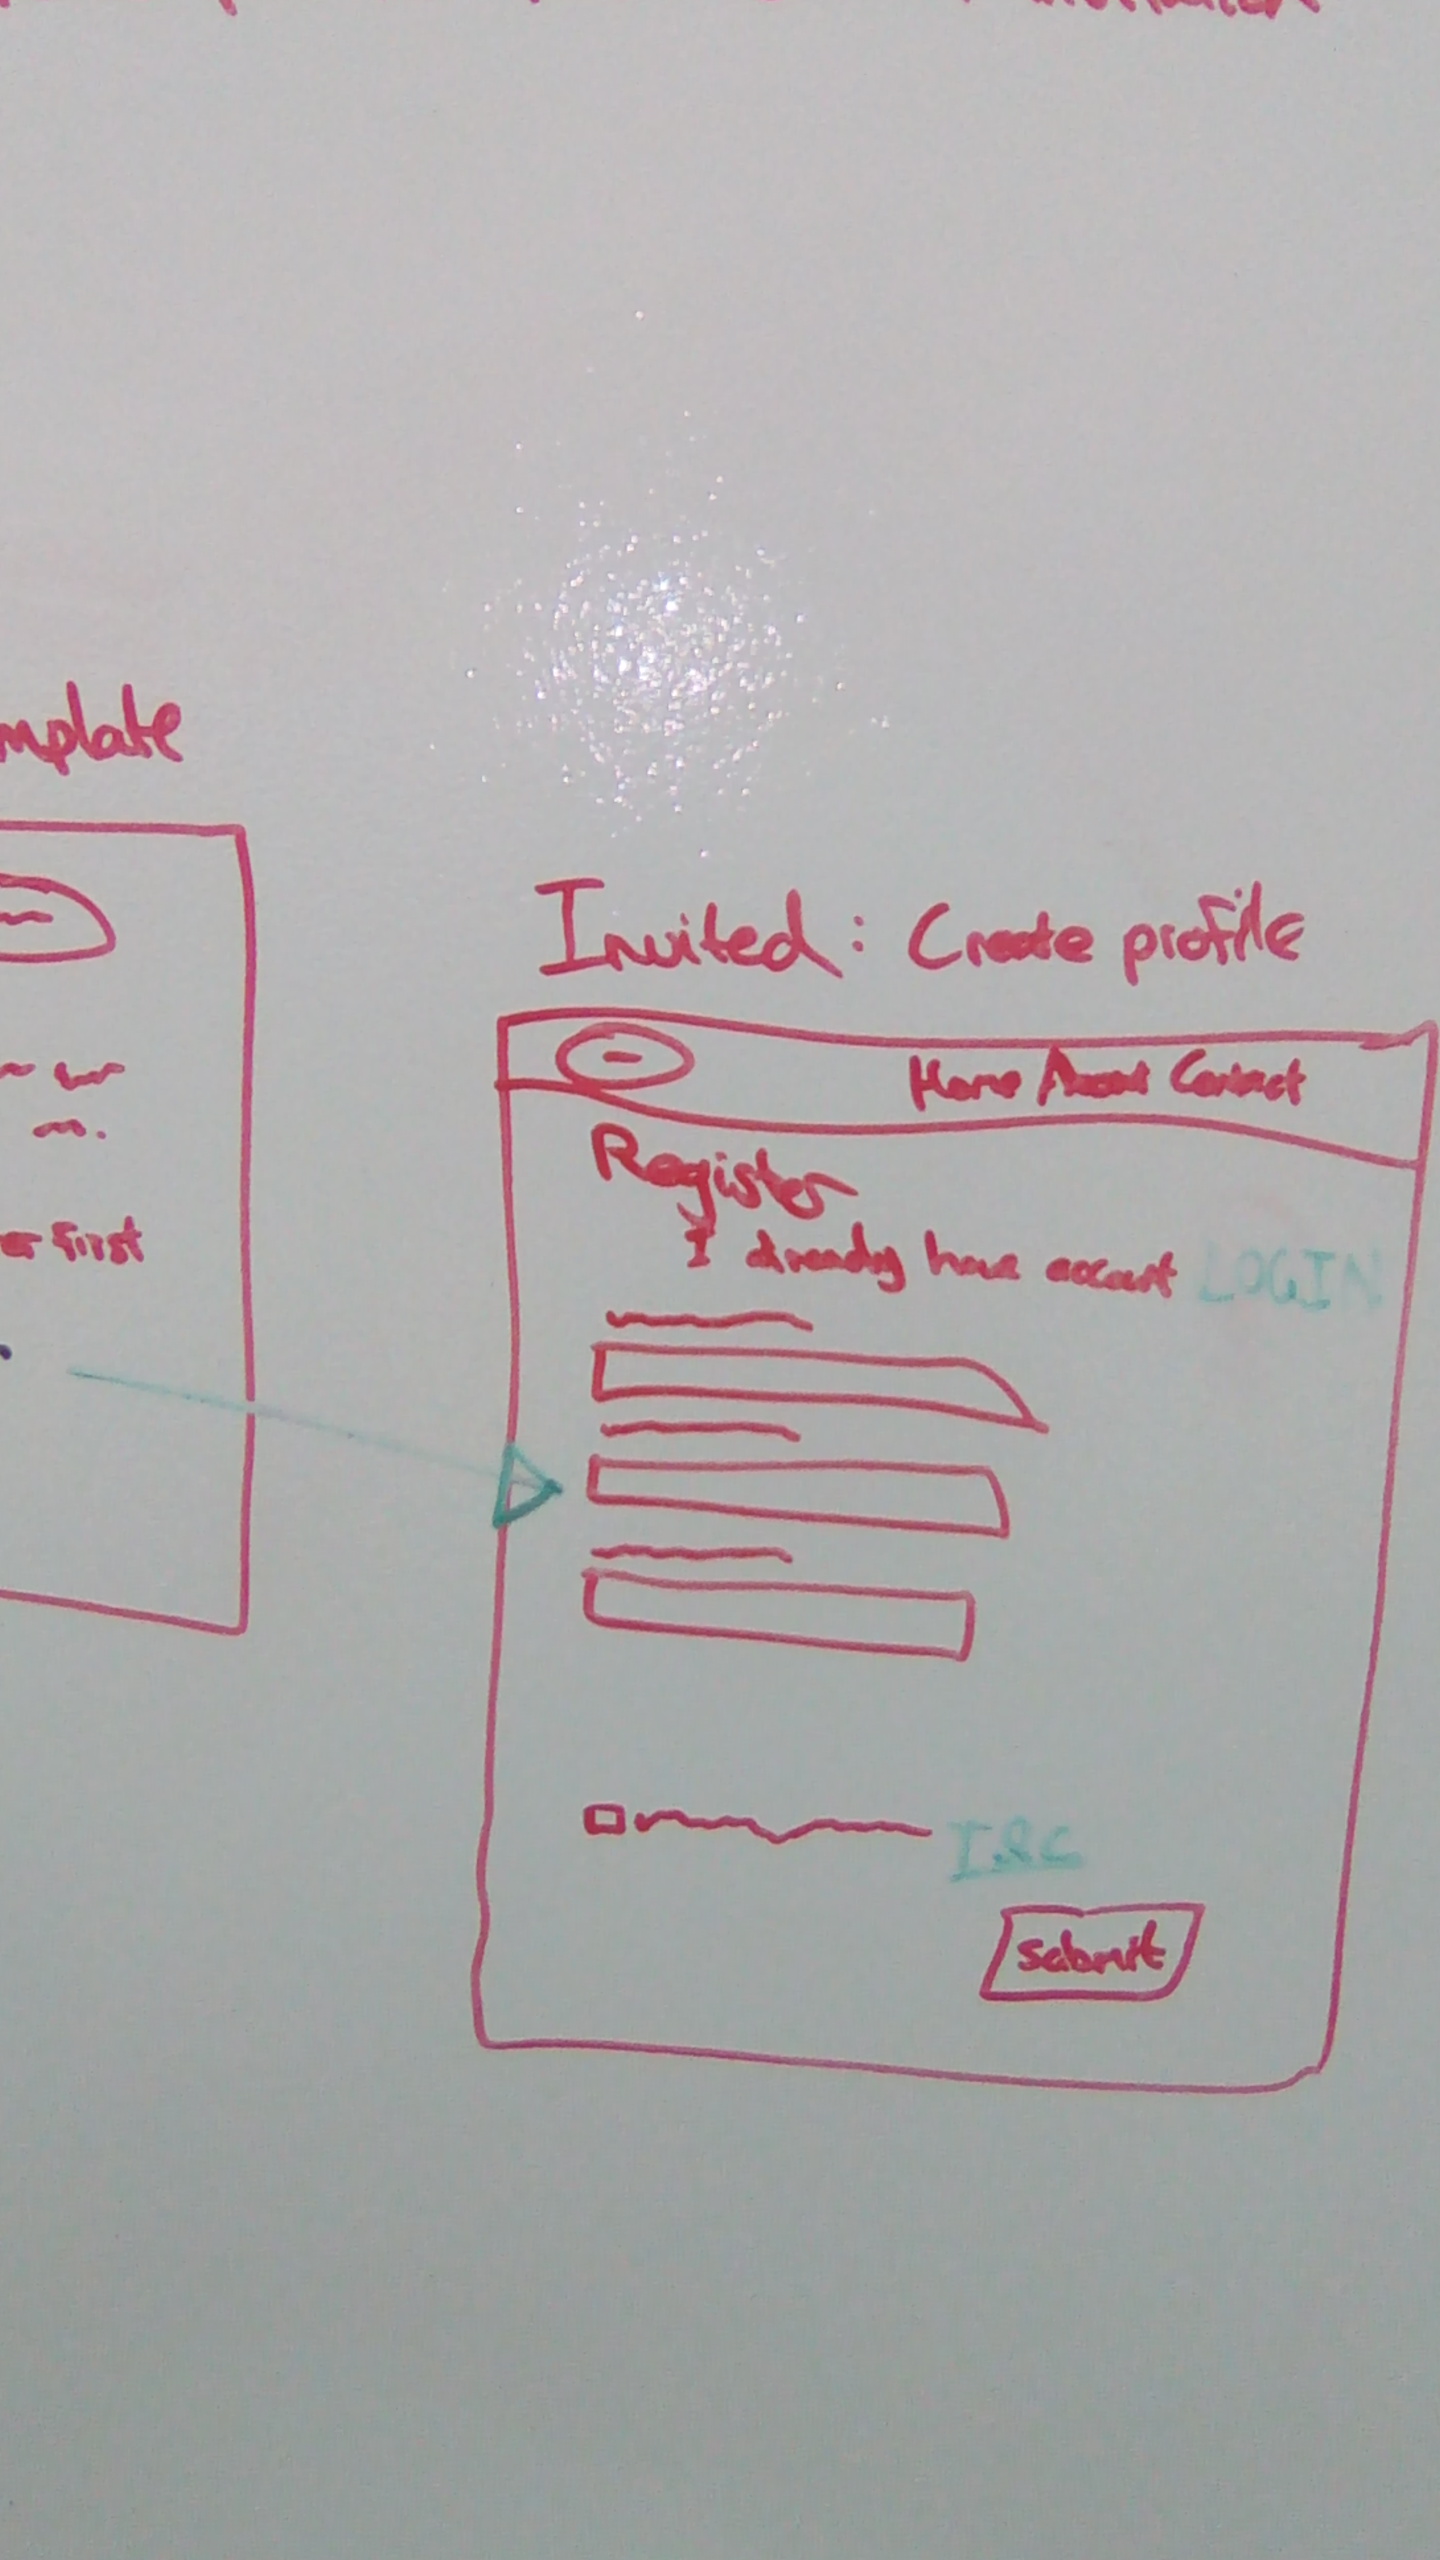 mplate
first
Invited: Create profile
Home About Contact
Register
I already have account LOGIN
submit